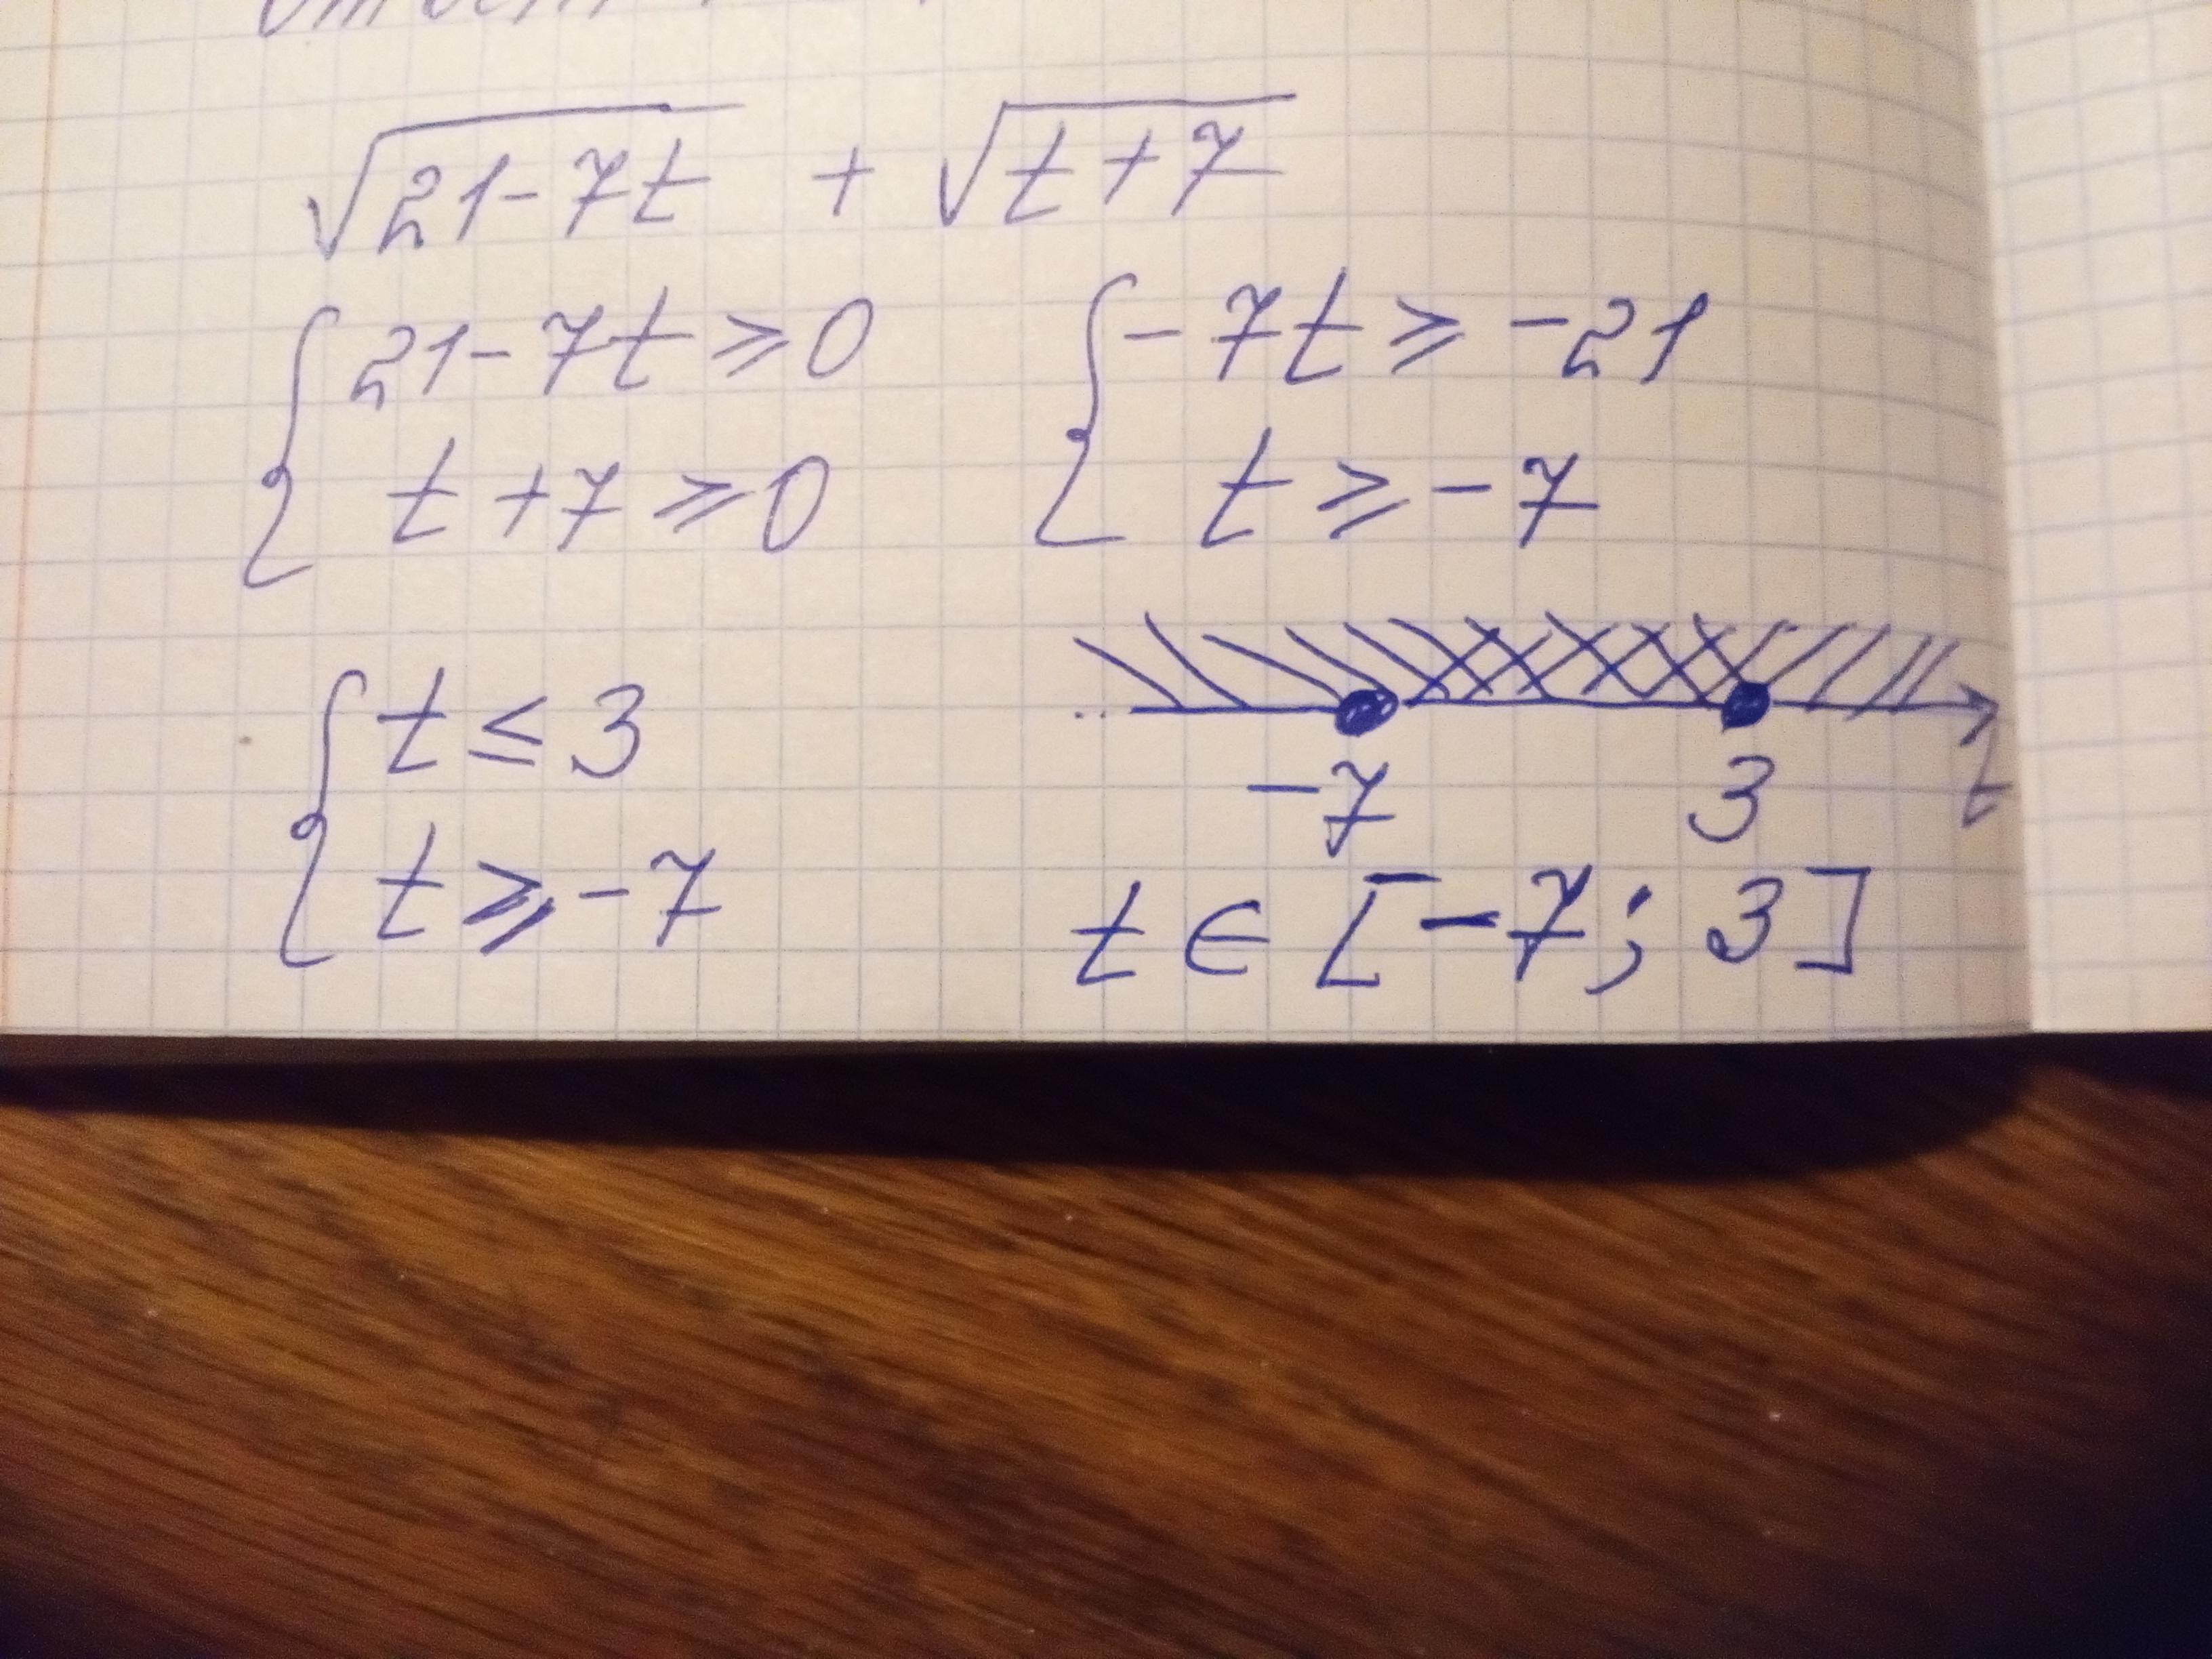 √21-7t + √t+7
{ 21-7t ⩾ 0
t+7 ⩾ 0
{ -7t ⩾ -21
t ⩾ -7
{ t ≤ 3
t ⩾ -7
-7 3 t
t ∈ [-7; 3]